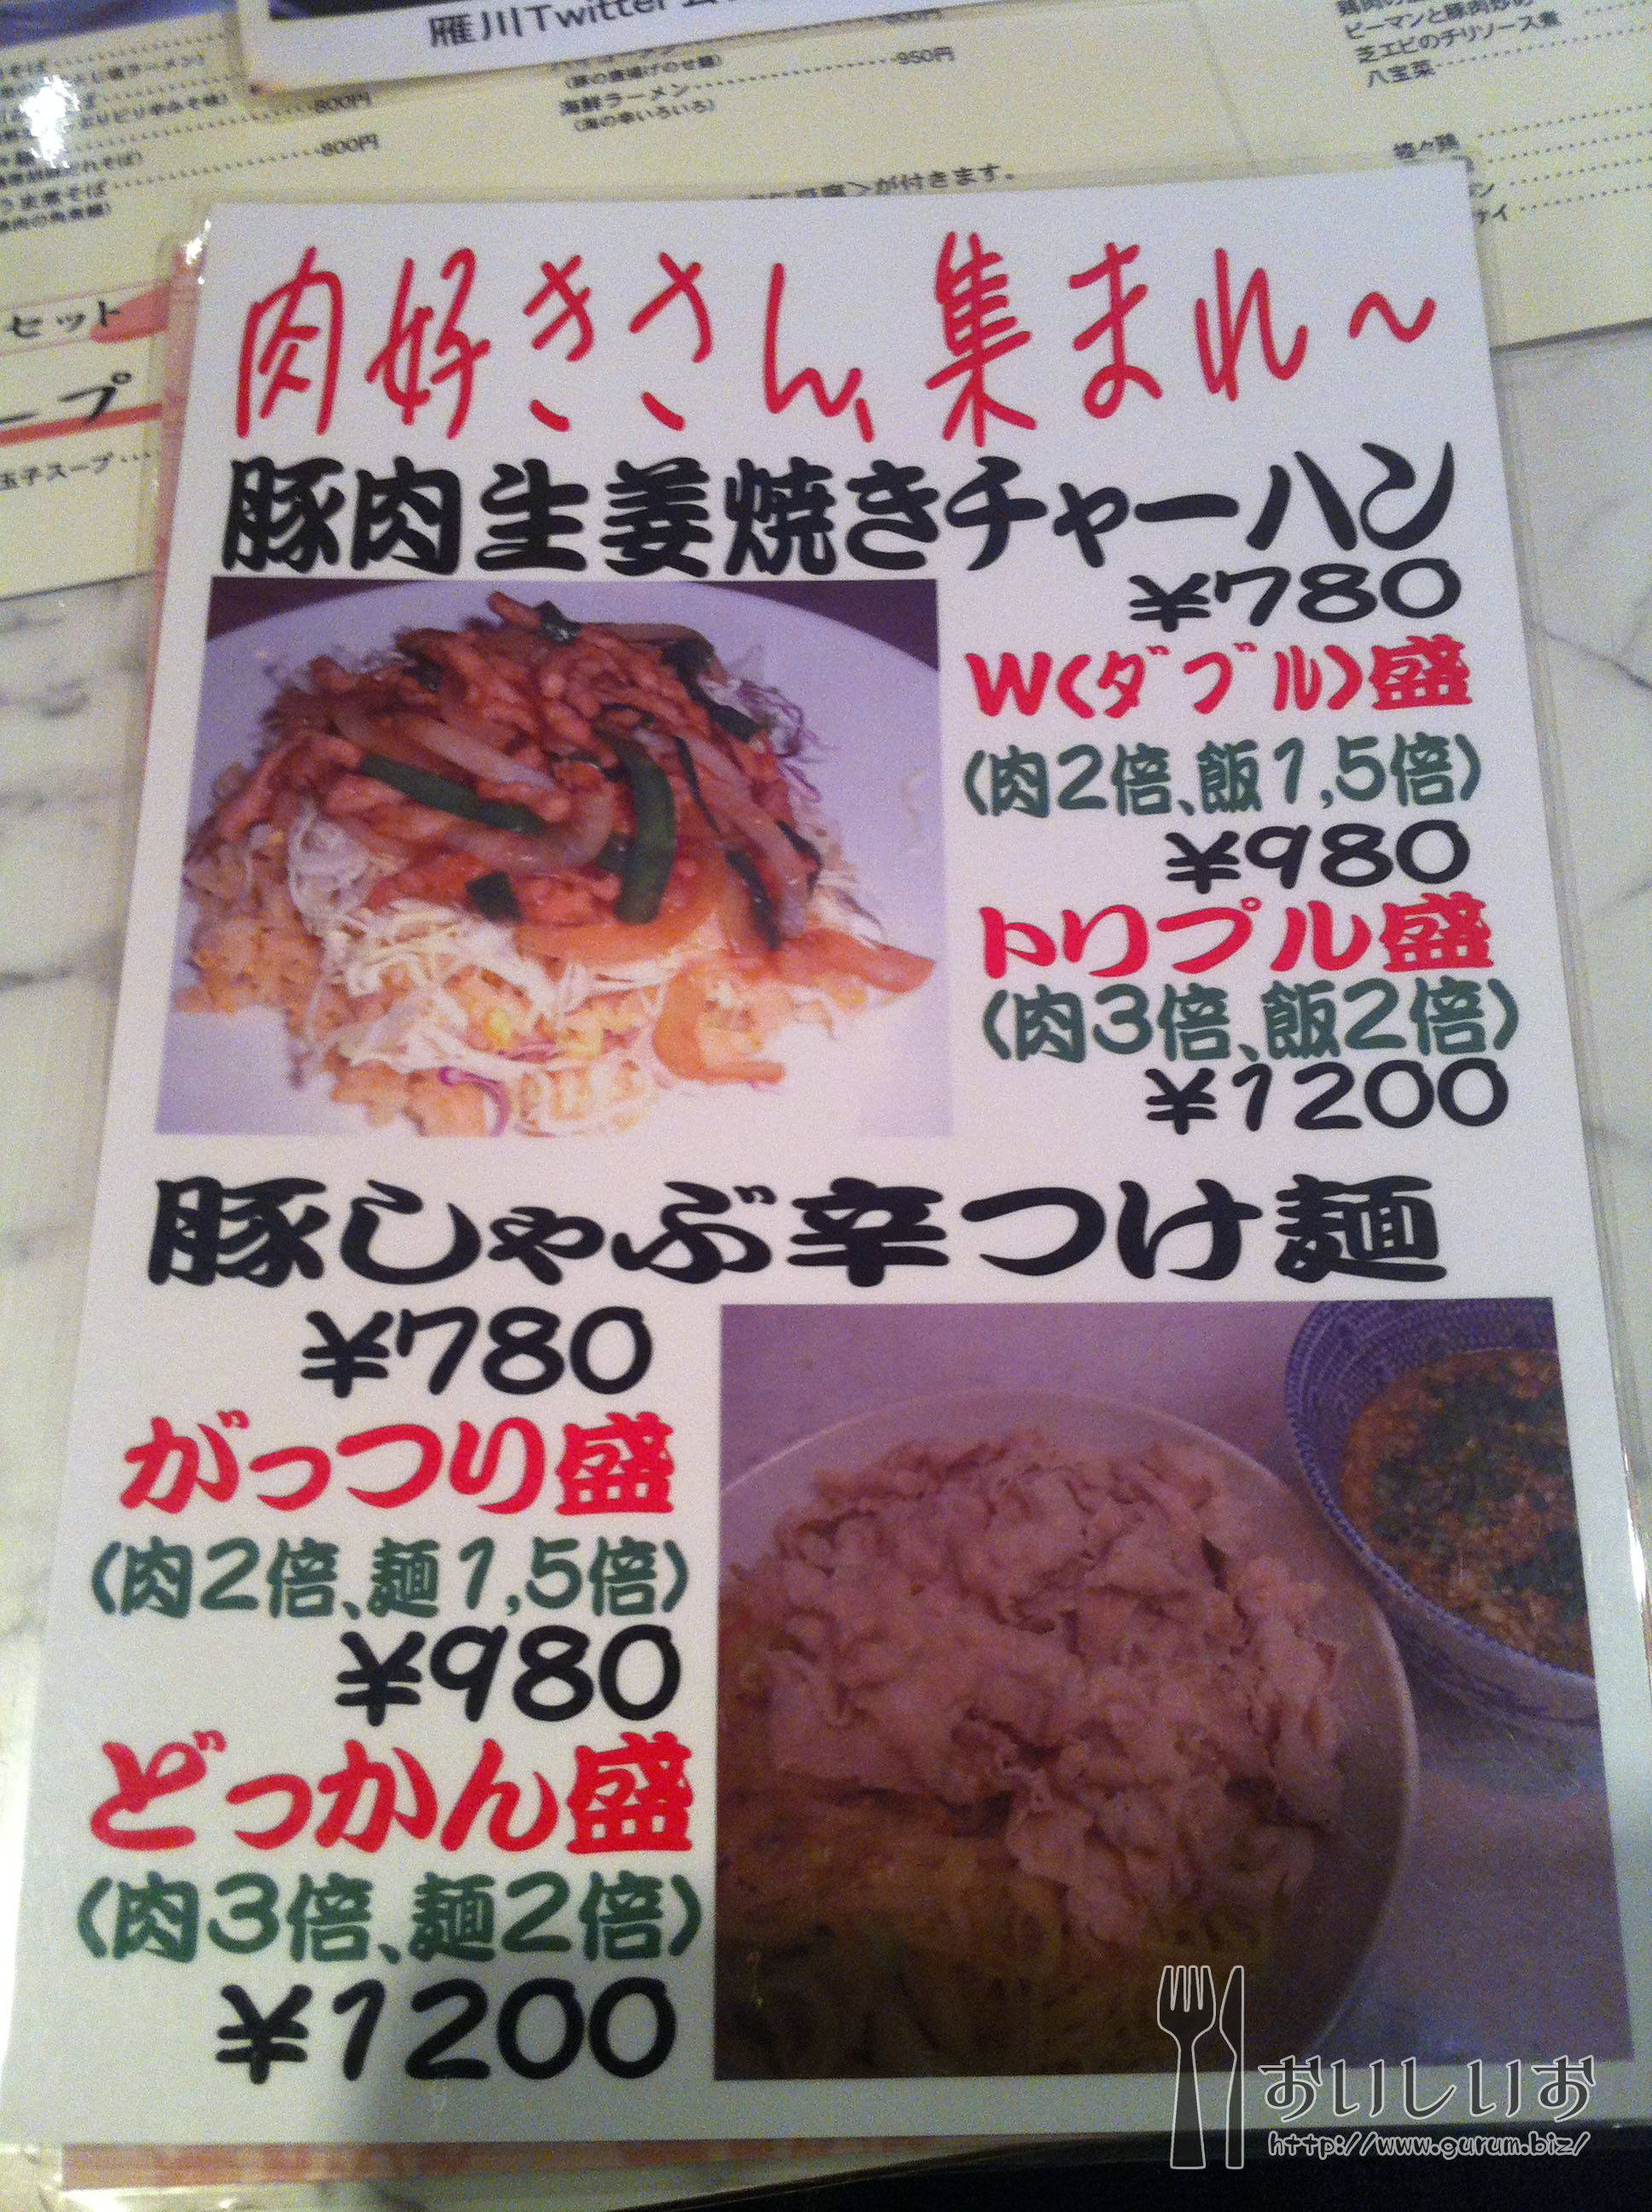 雁川Twitter
800円
800円
950円
海鮮ラーメン
(海の幸いろいろ)
(豚の唐揚げのせ麺)
ピーマンと豚肉炒め
芝エビのチリソース煮
八宝菜
が付きます。
セット
ープ
玉子スープ
肉好きさん、集まれ~
豚肉生姜焼きチャーハン
¥780
W(ダブル)盛
(肉2倍、飯1,5倍)
¥980
トリプル盛
(肉3倍、飯2倍)
¥1200
豚しゃぶ辛つけ麺
¥780
がっつり盛
(肉2倍、麺1,5倍)
¥980
どっかん盛
(肉3倍、麺2倍)
¥1200
おいしいお
http://www.gurum.biz/